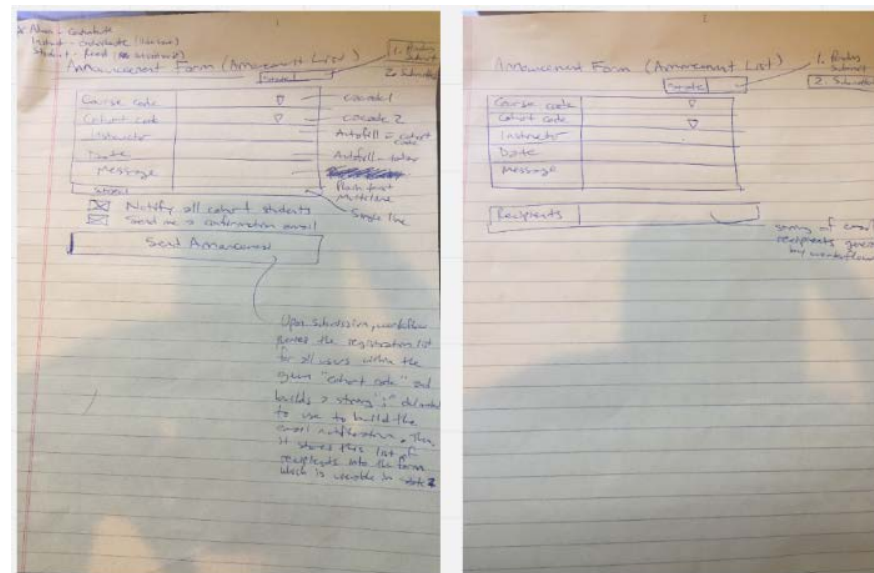 Admin - contribute
Student - Read
Announcement Form (Announcement List)
State
1. Pending Submit
2. Submitted
Course code
cascade 1
Cohort code
cascade 2
Instructor
Autofill = cohort code
Date
Autofill - today
Message
Plain text
multiline
Single line
Notify all cohort students
Send me a confirmation email
Send Announcement
Upon submission, workflow
the registration list
for all users within the
given "cohort code" and
builds a string ";" delimited
to use to build the
email notification. Then
it stores this list of
recipients into the form
which is viewable in state 2
Announcement Form (Announcement List)
State
1. Pending Submit
2. Submitted
Course code
Cohort code
Instructor
Date
Message
Recipients
string of email
recipients
by workflow